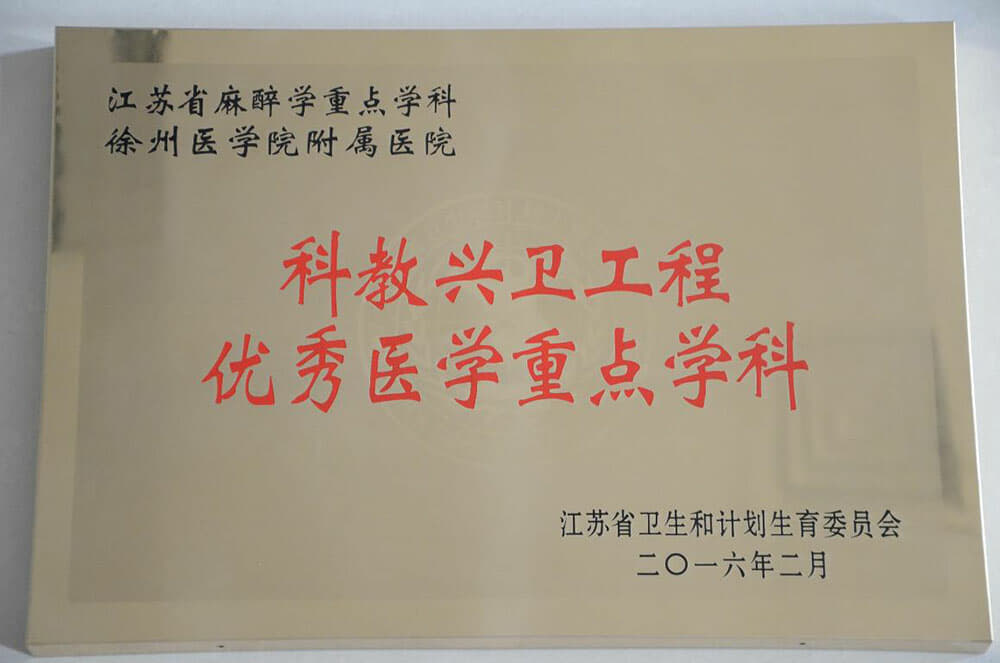 江苏省麻醉学重点学科
徐州医学院附属医院
科教兴卫工程
优秀医学重点学科
江苏省卫生和计划生育委员会
二〇一六年二月